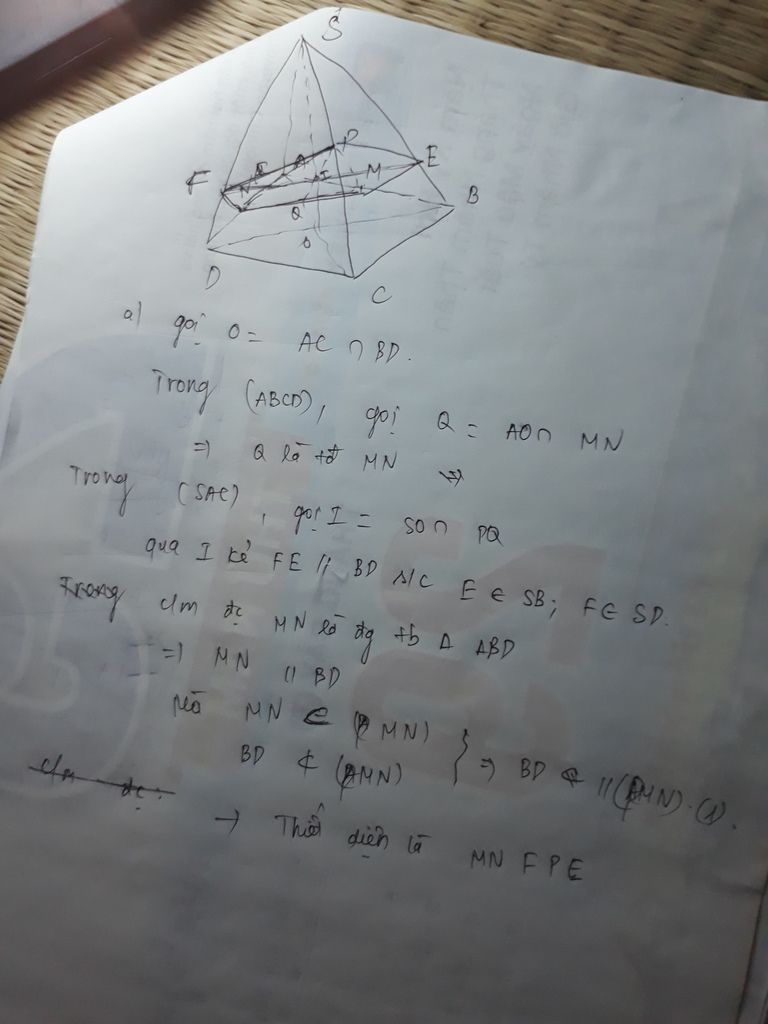 S
P
E
F
N
A
I
M
B
Q
O
D
C
a) gọi O = AC ∩ BD.
Trong (ABCD), gọi Q = AO ∩ MN
=> Q là tđ MN =>
Trong (SAC), gọi I = SO ∩ PQ
qua I kẻ FE // BD s/c E ∈ SB; F ∈ SD.
Trong c/m đc MN là đg tb Δ ABD
=> MN // BD
Mà MN ⊂ (PMN)
BD ⊄ (PMN) } => BD // (PMN). (1).
c/m đc.
→ Thiết diện là MNFPE